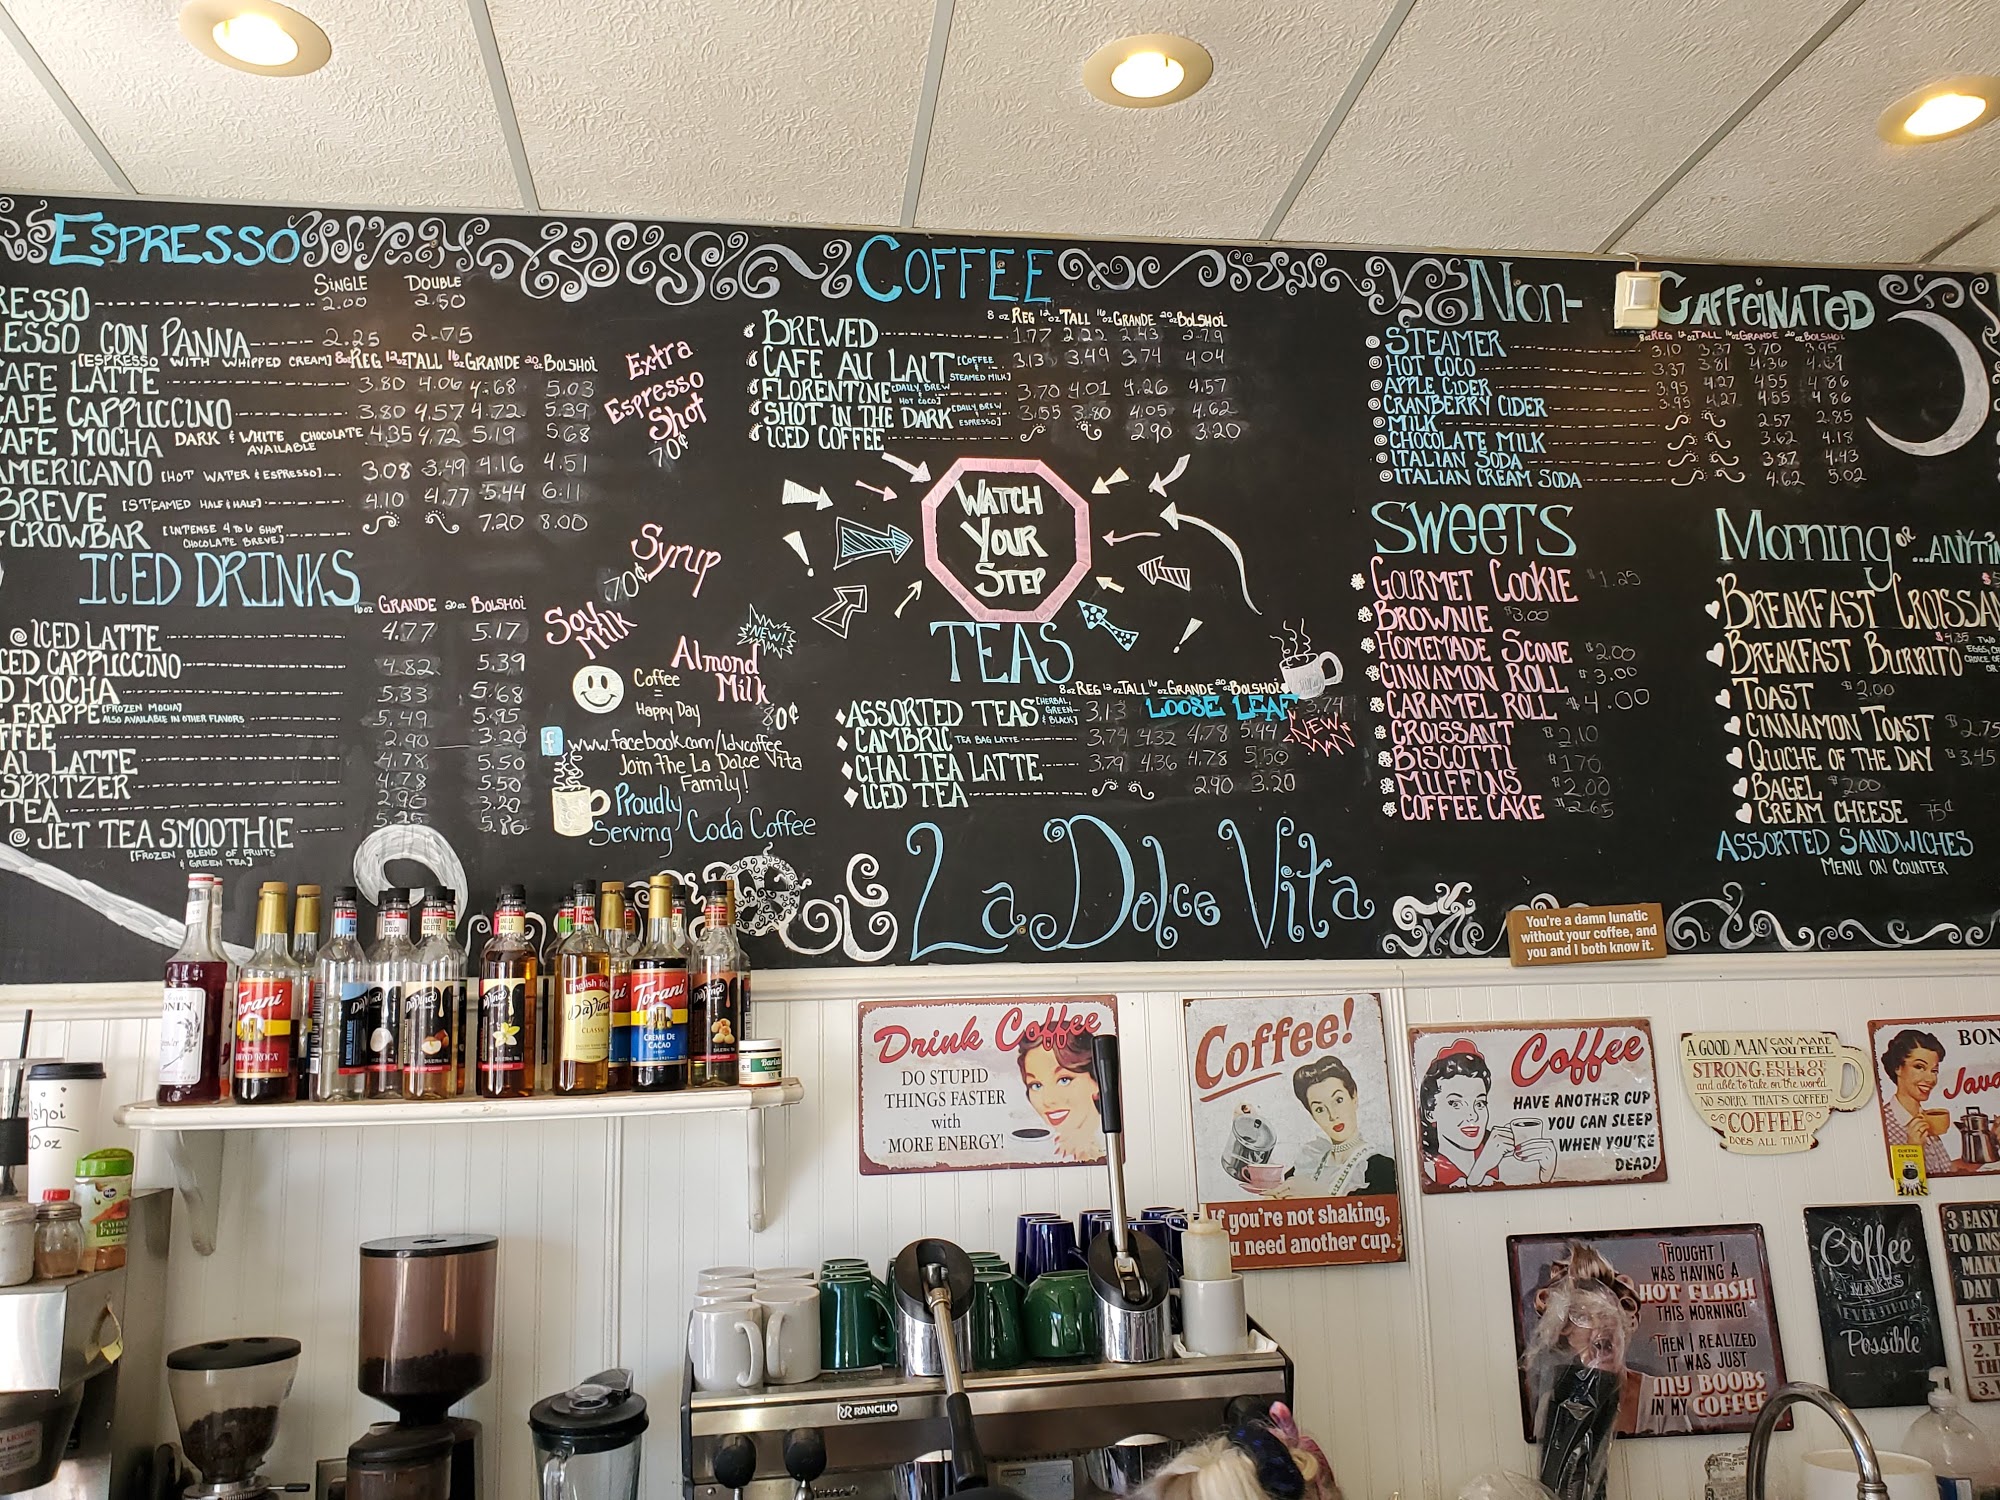 ESPRESSO
SINGLE DOUBLE
RESSO 2.00 2.50
ESSO CON PANNA 2.25 2.75
[ESPRESSO WITH WHIPPED CREAM] 8oz REG 12oz TALL 16oz GRANDE 20oz BOLSHOI
CAFE LATTE 3.80 4.06 4.68 5.03
CAFE CAPPUCCINO 3.80 4.57 4.72 5.39
CAFE MOCHA DARK & WHITE CHOCOLATE AVAILABLE 4.35 4.72 5.19 5.68
AMERICANO [HOT WATER & ESPRESSO] 3.08 3.49 4.16 4.51
BREVE [STEAMED HALF & HALF] 4.10 4.77 5.44 6.11
CROWBAR [INTENSE 4 TO 6 SHOT CHOCOLATE BREVE] 7.20 8.00
ICED DRINKS
16oz GRANDE 20oz BOLSHOI
ICED LATTE 4.77 5.17
CED CAPPUCCINO 4.82 5.39
D MOCHA 5.33 5.68
FRAPPE [FROZEN MOCHA] ALSO AVAILABLE IN OTHER FLAVORS 5.49 5.95
FFEE 2.90 3.20
AI LATTE 4.78 5.50
SPRITZER 4.78 5.50
TEA 2.90 3.20
JET TEA SMOOTHIE 5.25 5.86
[FROZEN BLEND OF FRUITS & GREEN TEA]
Extra
Espresso
Shot
70¢
Syrup
70¢
Soy
Milk
NEW!
Almond
Milk
80¢
Coffee
=
Happy Day
f www.facebook.com/ldvcoffee
Join the La Dolce Vita
Family!
Proudly
Serving Coda Coffee
COFFEE
8oz REG 12oz TALL 16oz GRANDE 20oz BOLSHOI
BREWED 1.77 2.22 2.43 2.79
CAFE AU LAIT [COFFEE & STEAMED MILK] 3.13 3.49 3.74 4.04
FLORENTINE [DAILY BREW HOT COCO] 3.70 4.01 4.26 4.57
SHOT IN THE DARK [DAILY BREW ESPRESSO] 3.55 3.80 4.05 4.62
ICED COFFEE 2.90 3.20
WATCH
YOUR
STEP
TEAS
8oz REG 12oz TALL 16oz GRANDE 20oz BOLSHOI
ASSORTED TEAS [HERBAL, GREEN & BLACK] 3.13 LOOSE LEAF 3.74
NEW
CAMBRIC TEA BAG LATTE 3.74 4.32 4.78 5.44
CHAI TEA LATTE 3.79 4.36 4.78 5.50
ICED TEA 2.90 3.20
La Dolce Vita
NON-CAFFEINATED
8oz REG 12oz TALL 16oz GRANDE 20oz BOLSHOI
STEAMER 3.10 3.37 3.70 3.95
HOT COCO 3.37 3.81 4.36 4.69
APPLE CIDER 3.95 4.27 4.55 4.86
CRANBERRY CIDER 3.95 4.27 4.55 4.86
MILK 2.57 2.85
CHOCOLATE MILK 3.62 4.18
ITALIAN SODA 3.87 4.43
ITALIAN CREAM SODA 4.62 5.02
SWEETS
GOURMET COOKIE $1.25
BROWNIE $3.00
HOMEMADE SCONE $2.00
CINNAMON ROLL $3.00
CARAMEL ROLL $4.00
CROISSANT $2.10
BISCOTTI $1.70
MUFFINS $2.00
COFFEE CAKE $2.65
Morning OR ...ANYTI
BREAKFAST CROISSAN
BREAKFAST BURRITO $4.35 TWO
TOAST $2.00
CINNAMON TOAST $2.75
QUICHE OF THE DAY $3.45
BAGEL $2.00
CREAM CHEESE 75¢
ASSORTED SANDWICHES
MENU ON COUNTER
You're a damn lunatic
without your coffee, and
you and I both know it.
Torani
DaVinci
DaVinci
DaVinci
English Toffee
DaVinci
CLASSIC
Torani
CREME DE
CACAO
DaVinci
Drink Coffee
DO STUPID
THINGS FASTER
with
MORE ENERGY!
Coffee!
If you're not shaking,
u need another cup.
Coffee
HAVE ANOTHER CUP
YOU CAN SLEEP
WHEN YOU'RE
DEAD!
A GOOD MAN CAN MAKE YOU FEEL
STRONG, FULL OF ENERGY
and able to take on the world
NO SORRY, THAT'S COFFEE
COFFEE
DOES ALL THAT!
BON
Java
THOUGHT I
WAS HAVING A
HOT FLASH
THIS MORNING!
THEN I REALIZED
IT WAS JUST
MY BOOBS
IN MY COFFEE
Coffee
MAKES
EVERYTHING
Possible
3 EASY
TO INS
MAK
DAY
1. S
THE
2.
TH
3.
lshoi
20 oz
RANCILIO